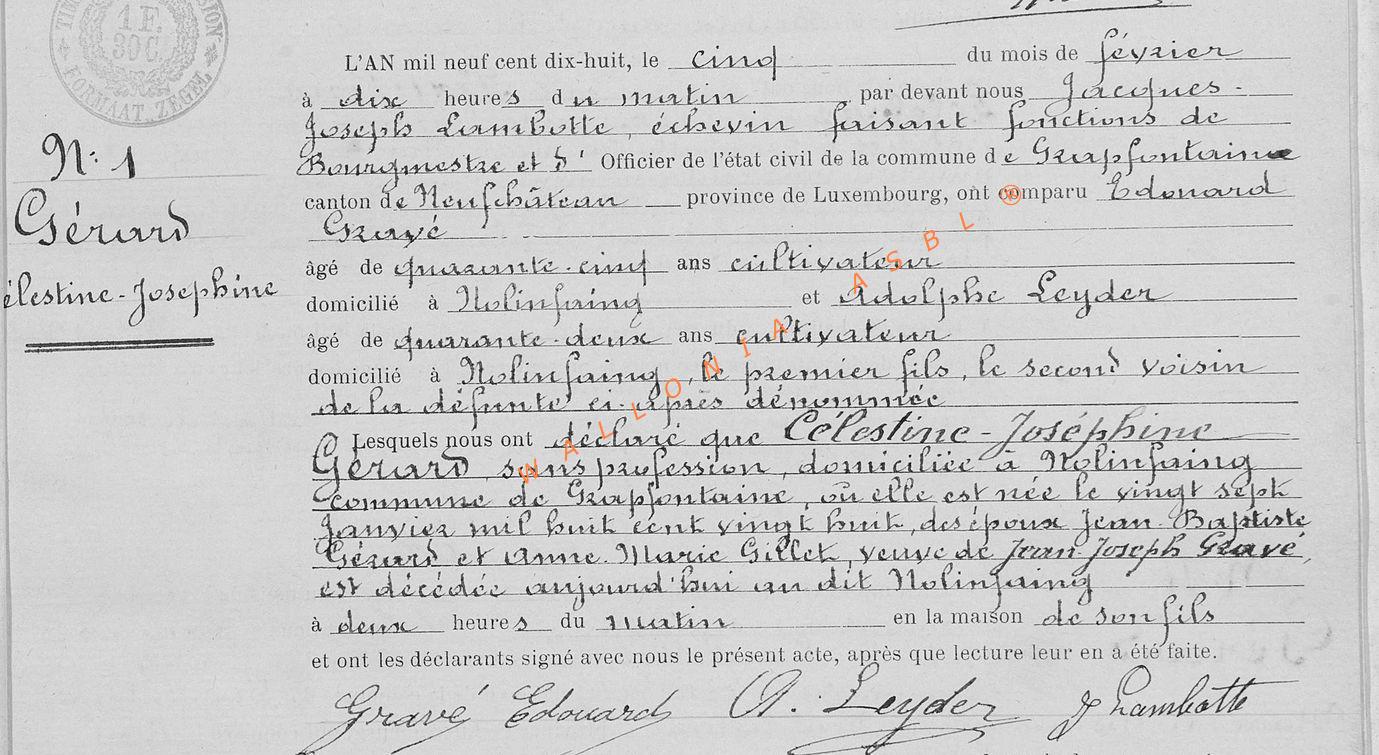 1 F.
30 C.
FORMAAT ZEGEL
L'AN mil neuf cent dix-huit, le cinq du mois de février
à dix heures du matin par devant nous Jacques-
Joseph Lambotte, échevin faisant fonctions de
Bourgmestre et d' Officier de l'état civil de la commune de Grapfontaine
canton de Neufchâteau province de Luxembourg, ont comparu Edouard
Gravé
âgé de quarante-cinq ans cultivateur
domicilié à Nolinfaing et Adolphe Leyder
âgé de quarante-deux ans cultivateur
domicilié à Nolinfaing, le premier fils, le second voisin
de la défunte ci-après dénommée
Lesquels nous ont déclaré que Célestine-Joséphine
Gérard, sans profession, domiciliée à Nolinfaing
commune de Grapfontaine, où elle est née le vingt sept
Janvier mil huit cent vingt huit, des époux Jean-Baptiste
Gérard et Anne-Marie Gillet, veuve de Jean-Joseph Gravé,
est décédée aujourd'hui au dit Nolinfaing
à deux heures du matin en la maison de son fils
et ont les déclarants signé avec nous le présent acte, après que lecture leur en a été faite.
Gravé Edouard A. Leyder J Lambotte
N: 1
Gérard
élestine-Josephine
WALLONIA ASBL ®